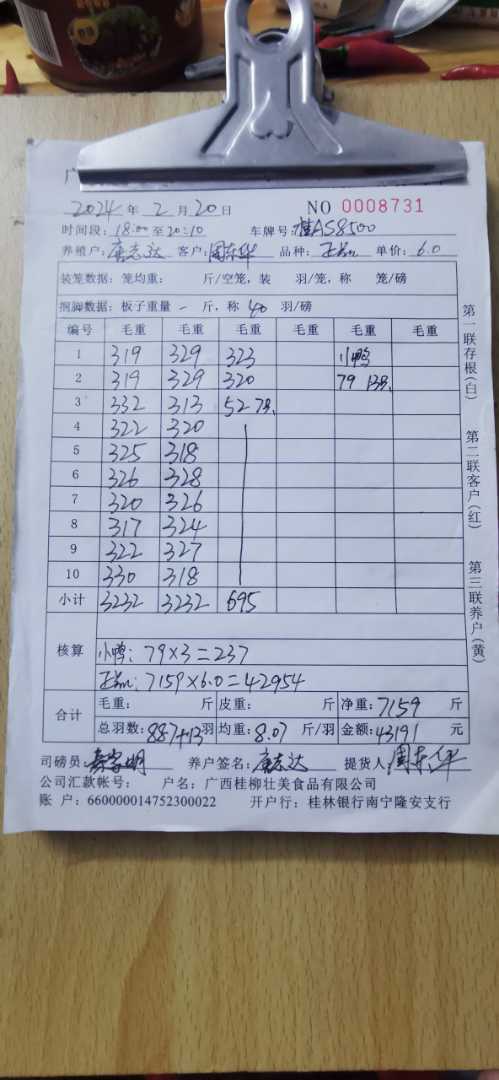 广
2024 年 2 月 20 日 NO 0008731
时间段: 18:00 至 20:10 车牌号: 桂AS8500
养殖户: 唐志达 客户: 周东华 品种: 单价: 6.0
装笼数据: 笼均重: 斤/空笼, 装 羽/笼, 称 笼/磅
捆脚数据: 板子重量 - 斤, 称 40 羽/磅
编号 毛重 毛重 毛重 毛重 毛重 毛重
1 319 329 323 小鸭
2 319 329 320 79 13只
3 332 313 52 7只
4 322 320
5 325 318
6 326 328
7 320 326
8 317 324
9 322 327
10 330 318
小计 3232 3232 695
核算
小鸭: 79×3=237
7159×6.0=42954
合计 毛重: 斤 皮重: 斤 净重: 7159 斤
总羽数: 887+13 羽 均重: 8.07 斤/羽 金额: 43191 元
司磅员: 养户签名: 唐志达 提货人: 周东华
公司汇款帐号: 户名: 广西桂柳壮美食品有限公司
账 户: 660000014752300022 开户行: 桂林银行南宁隆安支行
第一联存根(白)
第二联客户(红)
第三联养户(黄)